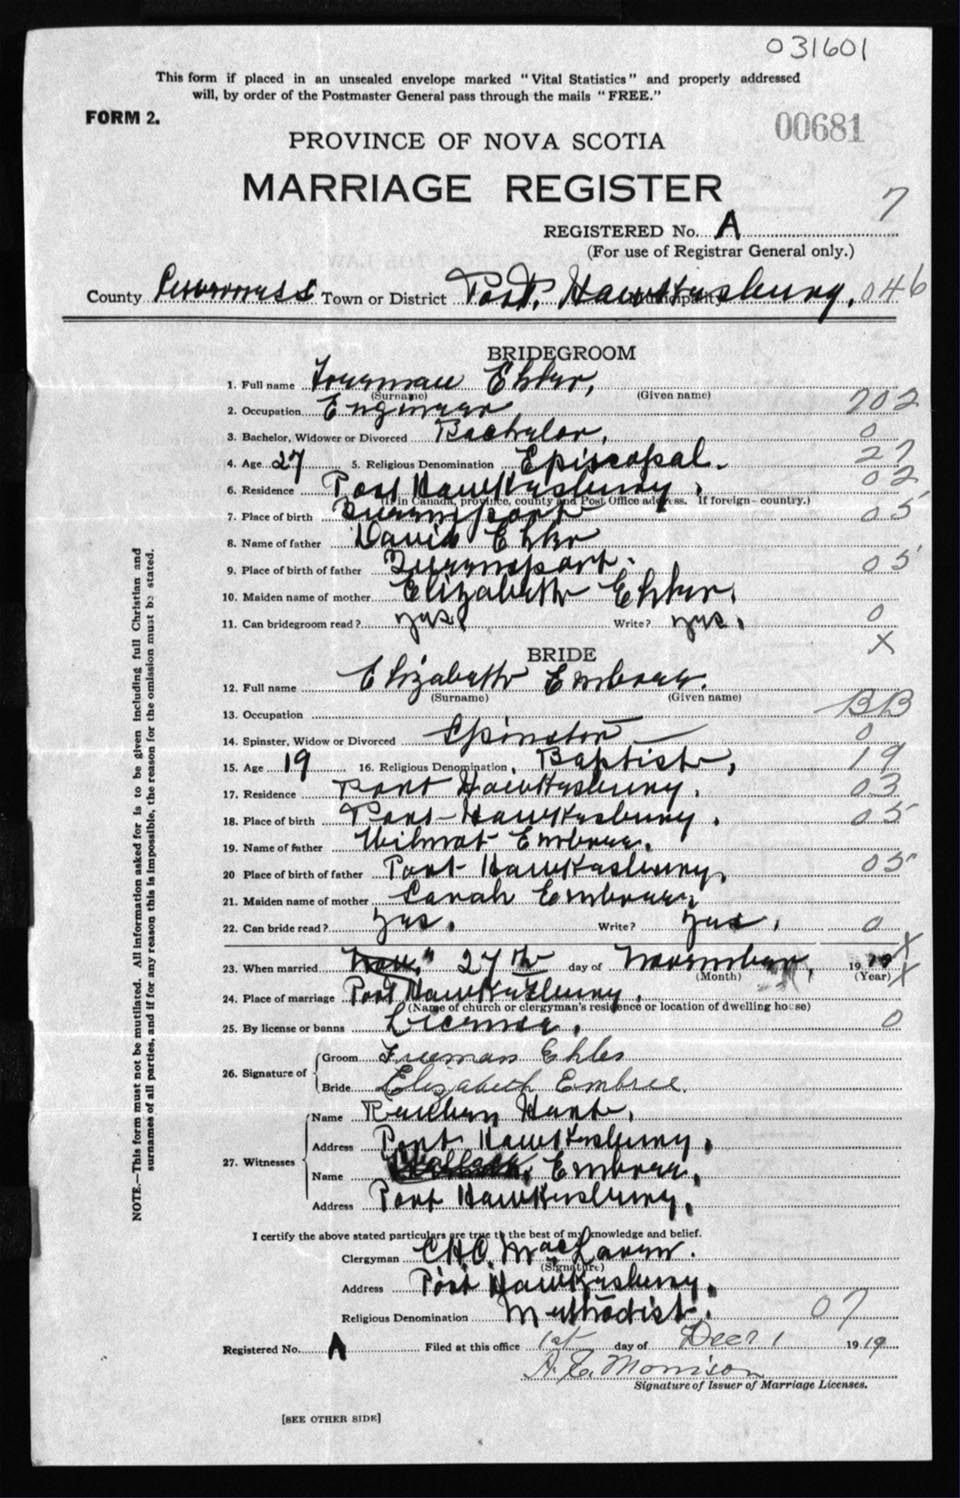 031601
This form if placed in an unsealed envelope marked "Vital Statistics" and properly addressed
will, by order of the Postmaster General pass through the mails "FREE."
FORM 2.
00681
PROVINCE OF NOVA SCOTIA
MARRIAGE REGISTER
7
REGISTERED No. A
(For use of Registrar General only.)
County Inverness Town or District Port Hawkesbury, 046
BRIDEGROOM
1. Full name Freeman Ehler,
(Surname) (Given name)
2. Occupation Engineer 702
3. Bachelor, Widower or Divorced Bachelor, 0
4. Age 27 5. Religious Denomination Episcopal. 27
6. Residence Port Hawkesbury, 02
(If in Canada, province, county and Post Office address. If foreign—country.)
7. Place of birth Queensport 05
8. Name of father David Ehler
9. Place of birth of father Queensport. 05
10. Maiden name of mother Elizabeth Ehler.
11. Can bridegroom read? yes. Write? yes. 0
X
BRIDE
12. Full name Elizabeth Embree.
(Surname) (Given name)
13. Occupation BB
14. Spinster, Widow or Divorced Spinster 0
15. Age 19 16. Religious Denomination, Baptist, 19
17. Residence Port Hawkesbury. 03
18. Place of birth Port Hawkesbury. 05
19. Name of father Wilmot Embree.
20 Place of birth of father Port Hawkesbury, 05
21. Maiden name of mother Sarah Embree,
22. Can bride read? yes. Write? yes. 0
23. When married 27th day of November, 19 19 X
(Month) (Year) X
24. Place of marriage Port Hawkesbury.
(Name of church or clergyman's residence or location of dwelling house)
25. By license or banns License. 0
26. Signature of
Groom Freeman Ehler
Bride Elizabeth Embree
27. Witnesses
Name Hart,
Address Port Hawkesbury.
Name Embree,
Address Port Hawkesbury.
I certify the above stated particulars are true to the best of my knowledge and belief.
Clergyman C.H.C. MacLaren.
(Signature)
Address Port Hawkesbury.
Religious Denomination Methodist. 07
Registered No. A Filed at this office 1st day of Decr 1 19 19
A. C. Morrison
Signature of Issuer of Marriage Licenses.
[SEE OTHER SIDE]
NOTE.—This form must not be mutilated. All information asked for is to be given including full Christian and
surnames of all parties, and if for any reason this is impossible, the reason for the omission must be stated.